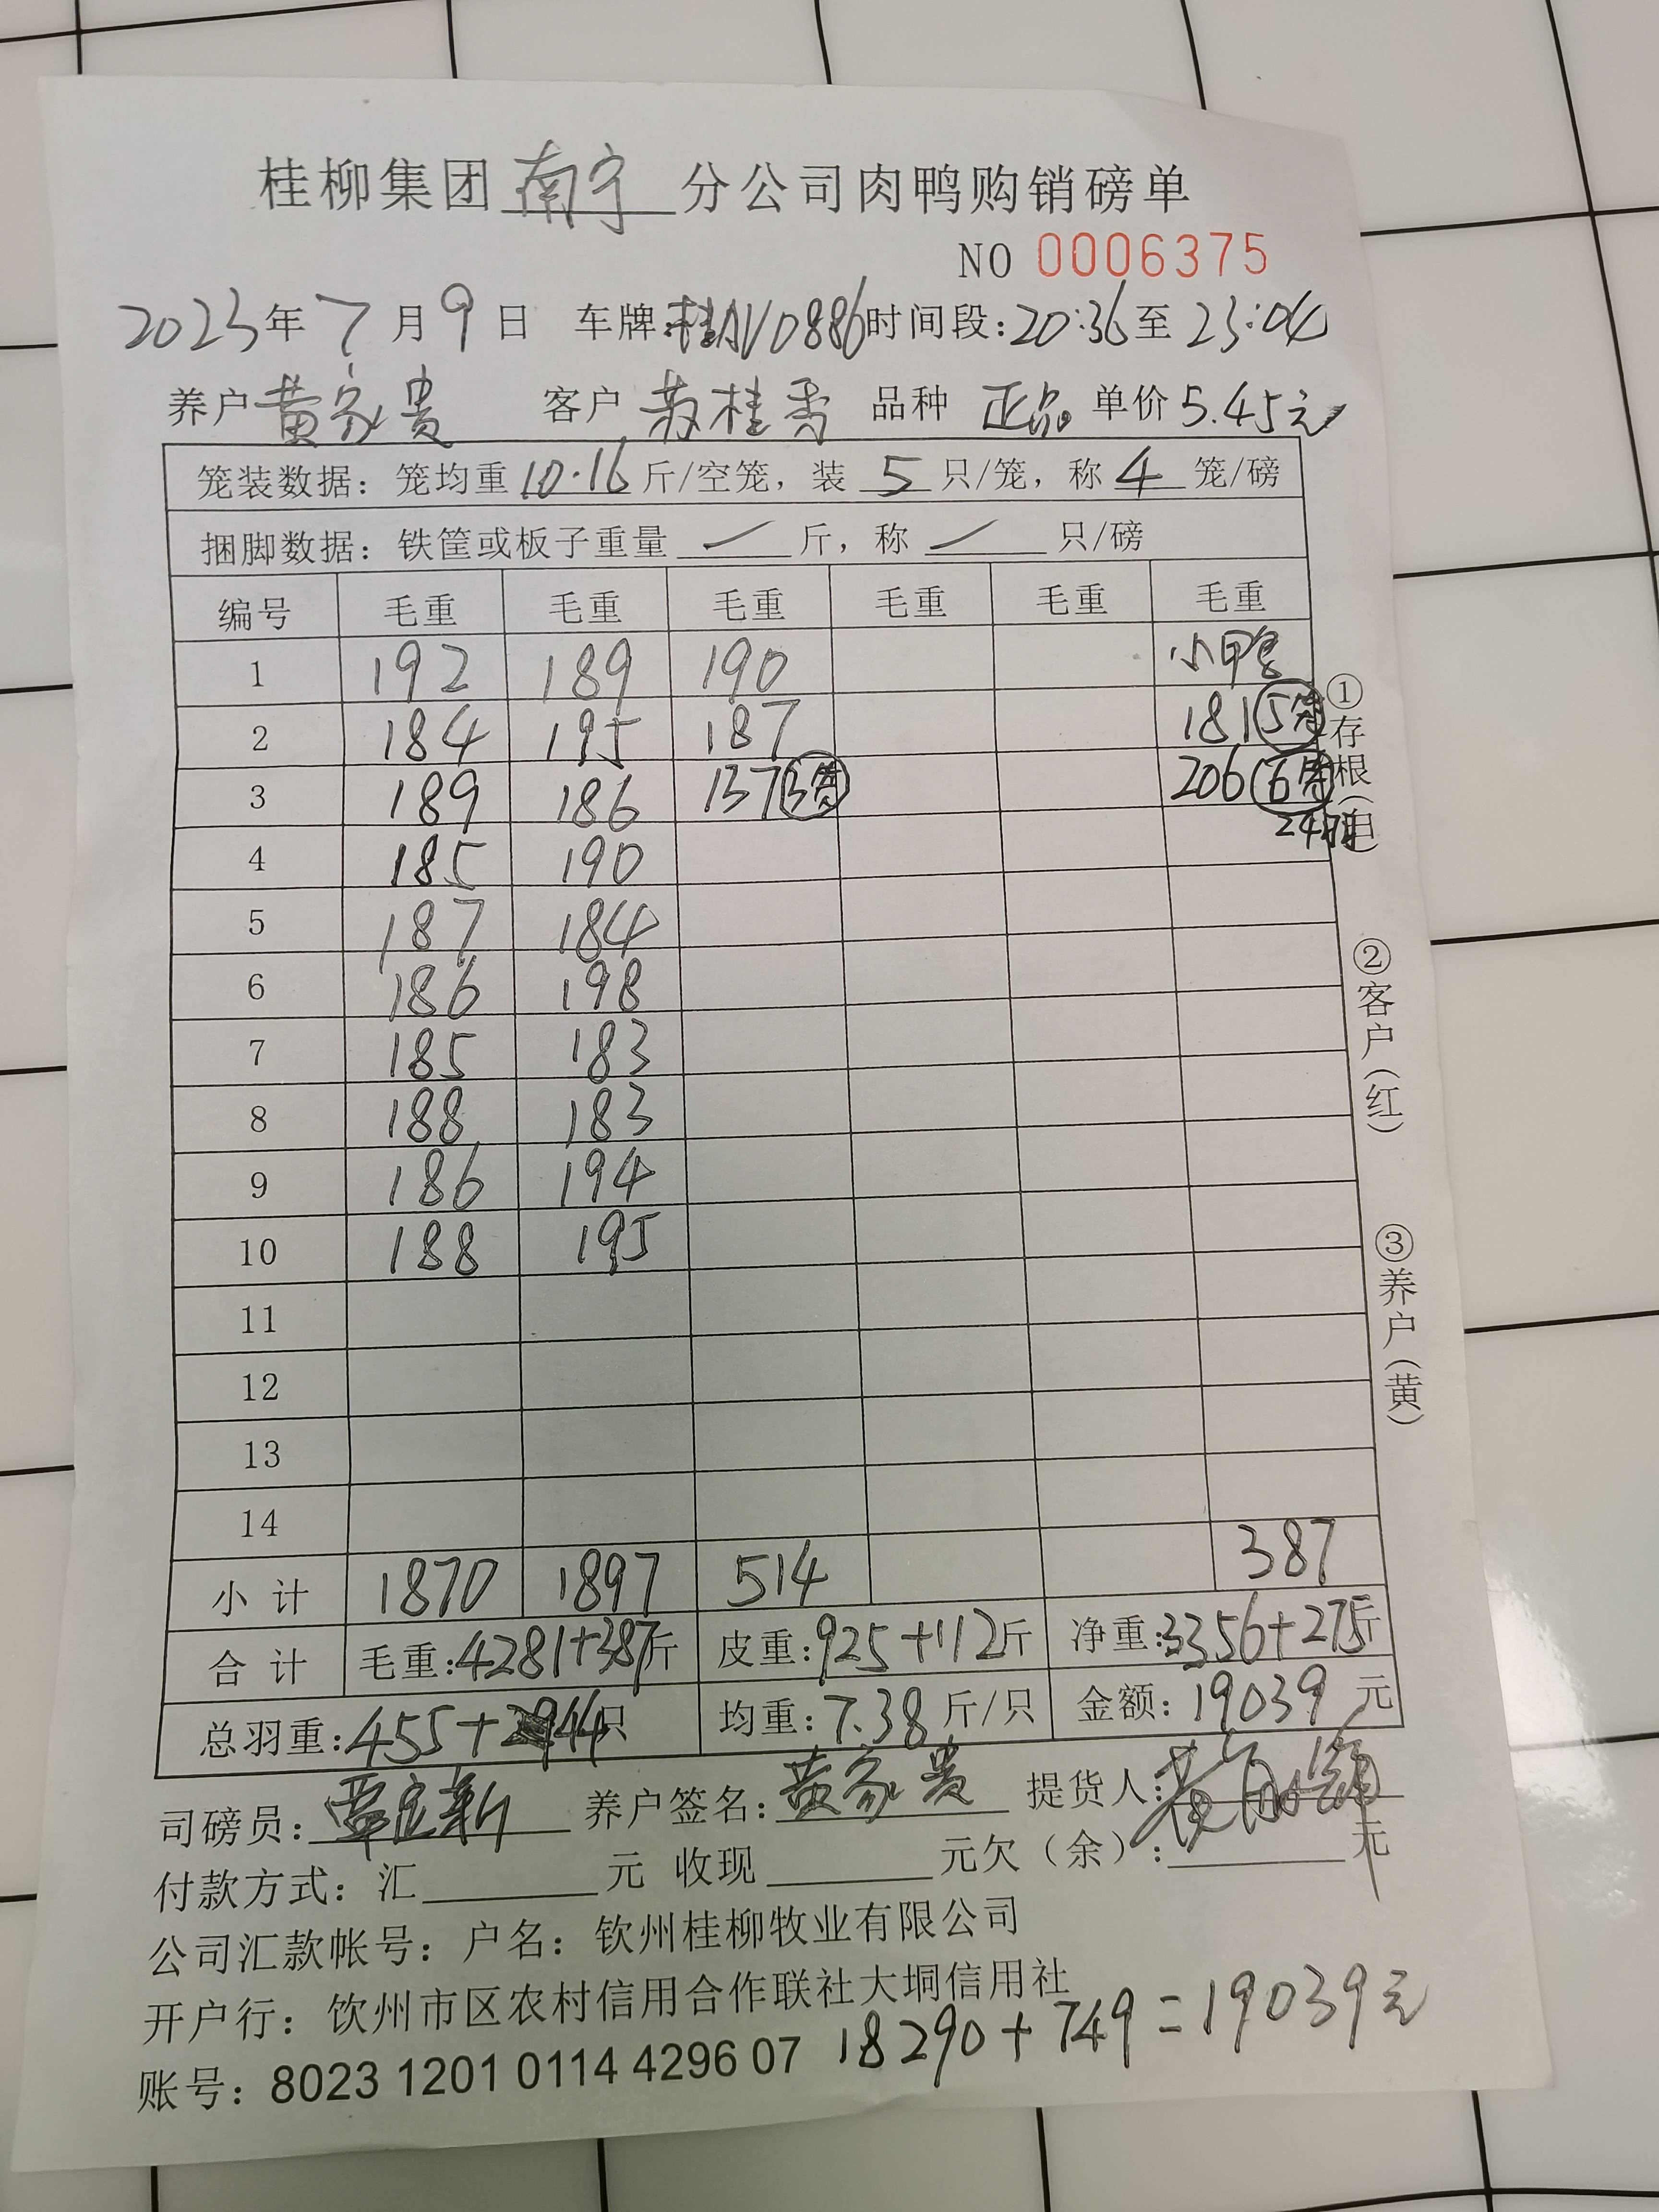 桂柳集团 南宁 分公司肉鸭购销磅单
NO 0006375
2023年 7月 9日 车牌:桂AV0886 时间段:20:36至 23:04
养户 黄家贵 客户 苏桂香 品种 正品 单价 5.45元
笼装数据: 笼均重 10.16 斤/空笼, 装 5 只/笼, 称 4 笼/磅
捆脚数据: 铁筐或板子重量 / 斤, 称 / 只/磅
编号 毛重 毛重 毛重 毛重 毛重 毛重
1 192 189 190 小鸭
2 184 195 187 181 5笼
3 189 186 137 3笼 206 6笼
24只
4 185 190
5 187 184
6 186 198
7 185 183
8 188 183
9 186 194
10 188 195
11
12
13
14 387
小计 1870 1897 514
合计 毛重:4281+387斤 皮重:925+112斤 净重:3356+275斤
总羽重:455+44只 均重:7.38斤/只 金额:19039元
司磅员: 养户签名:黄家贵 提货人:
付款方式: 汇 元 收现 元欠(余): 元
公司汇款帐号: 户名: 钦州桂柳牧业有限公司
开户行: 钦州市区农村信用合作联社大垌信用社
账号: 8023 1201 0114 4296 07 18290+749=19039元
①存根(白)
②客户(红)
③养户(黄)